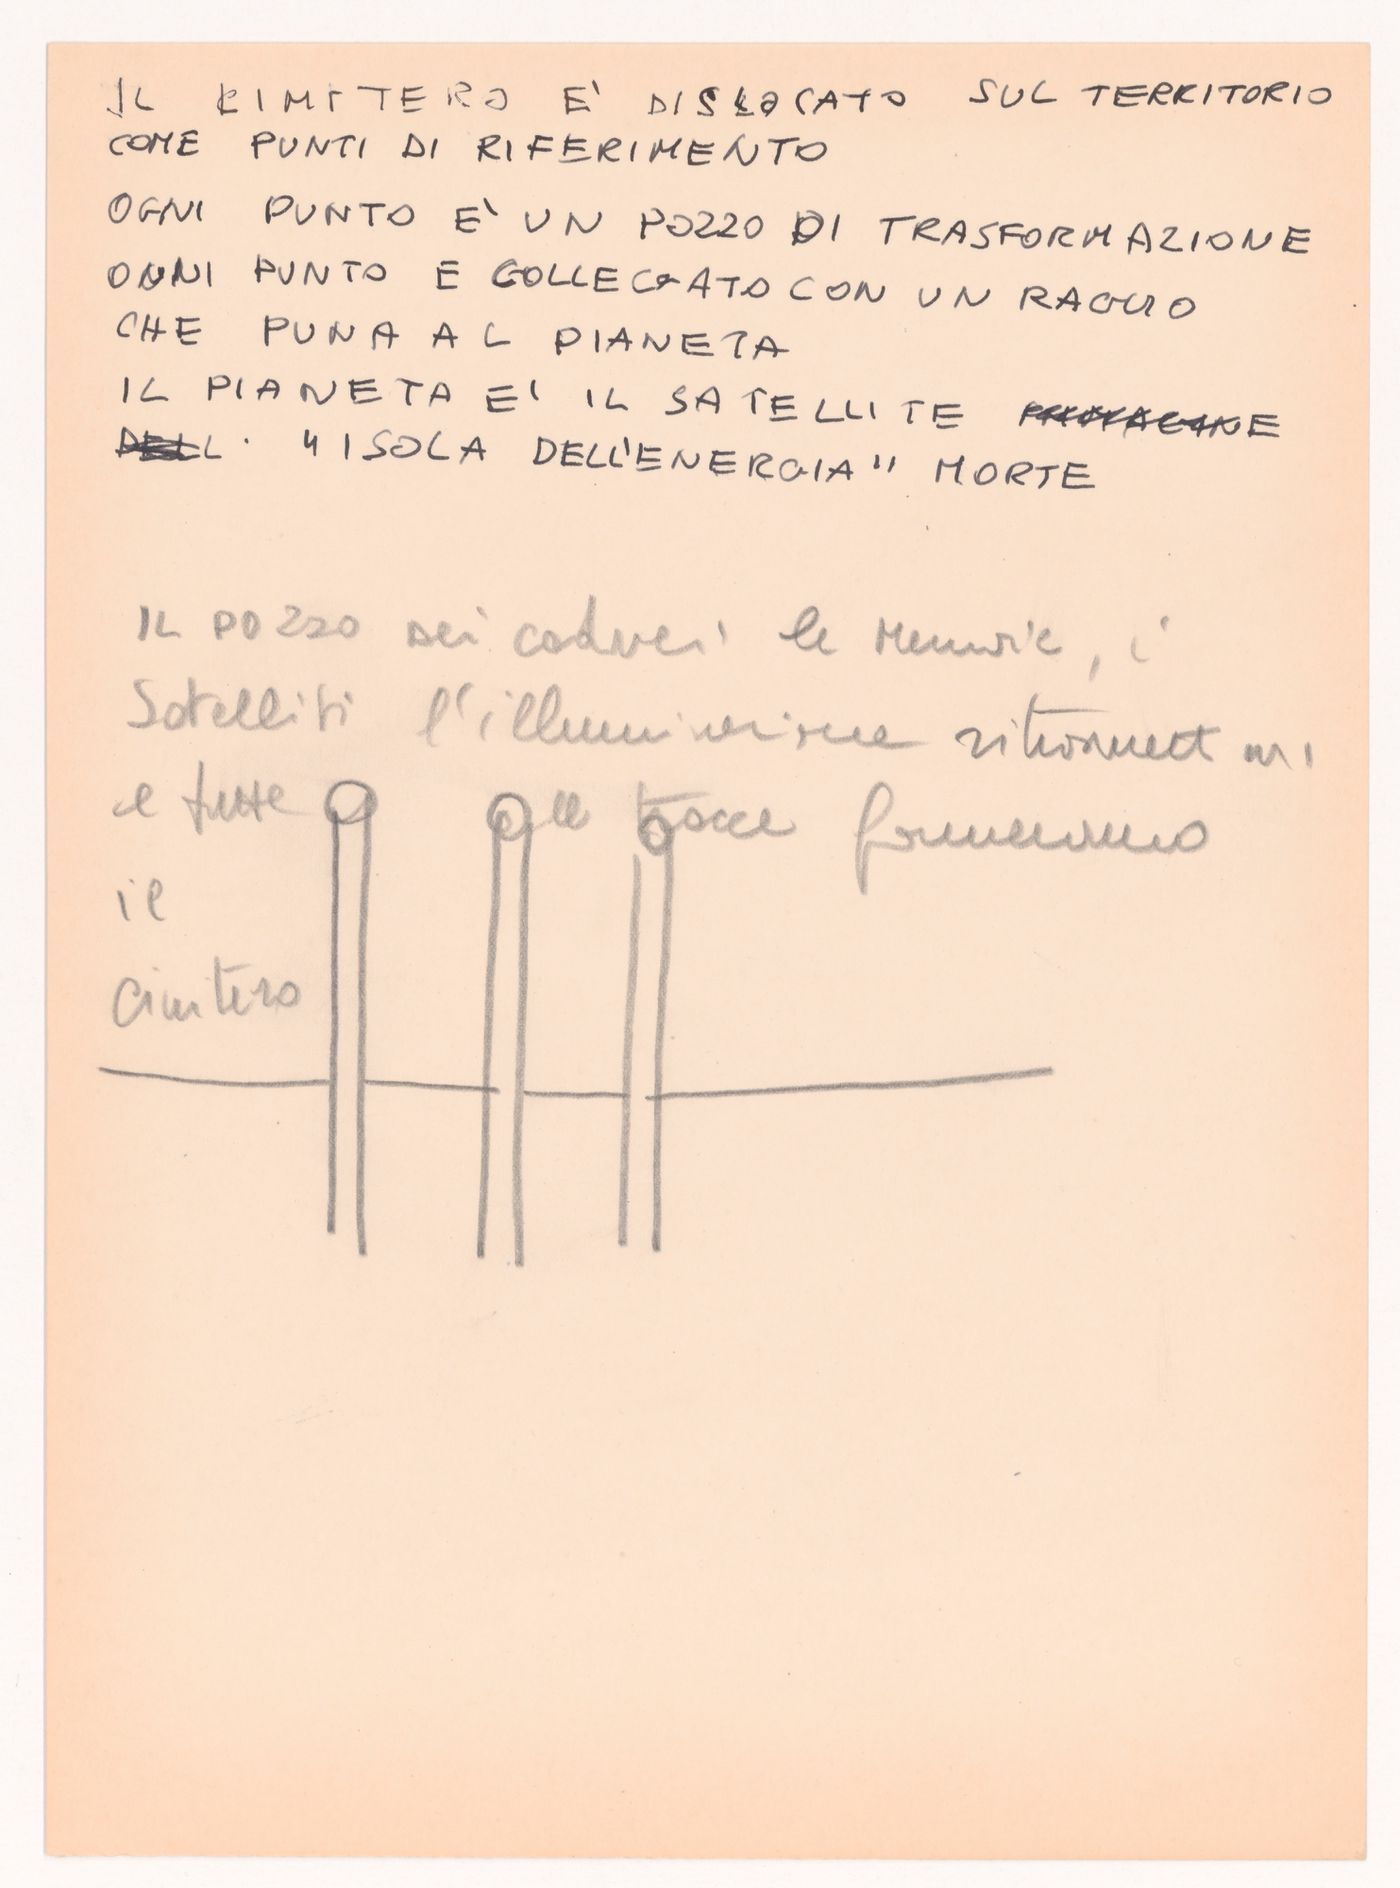 IL CIMITERO E' DISLOCATO SUL TERRITORIO
COME PUNTI DI RIFERIMENTO
OGNI PUNTO E' UN POZZO DI TRASFORMAZIONE
OGNI PUNTO E COLLEGATO CON UN RAGGIO
CHE PUNA AL PIANETA
IL PIANETA E' IL SATELLITE
"ISOLA DELL'ENERGIA" MORTE
IL POZZO dei cadaveri le memorie, i
Satelliti l'illuminazione
e tutte le tracce formeranno
il
cimitero